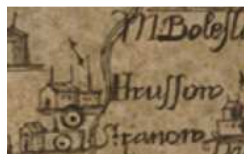 M Bolesl
Hrussow
Stranow